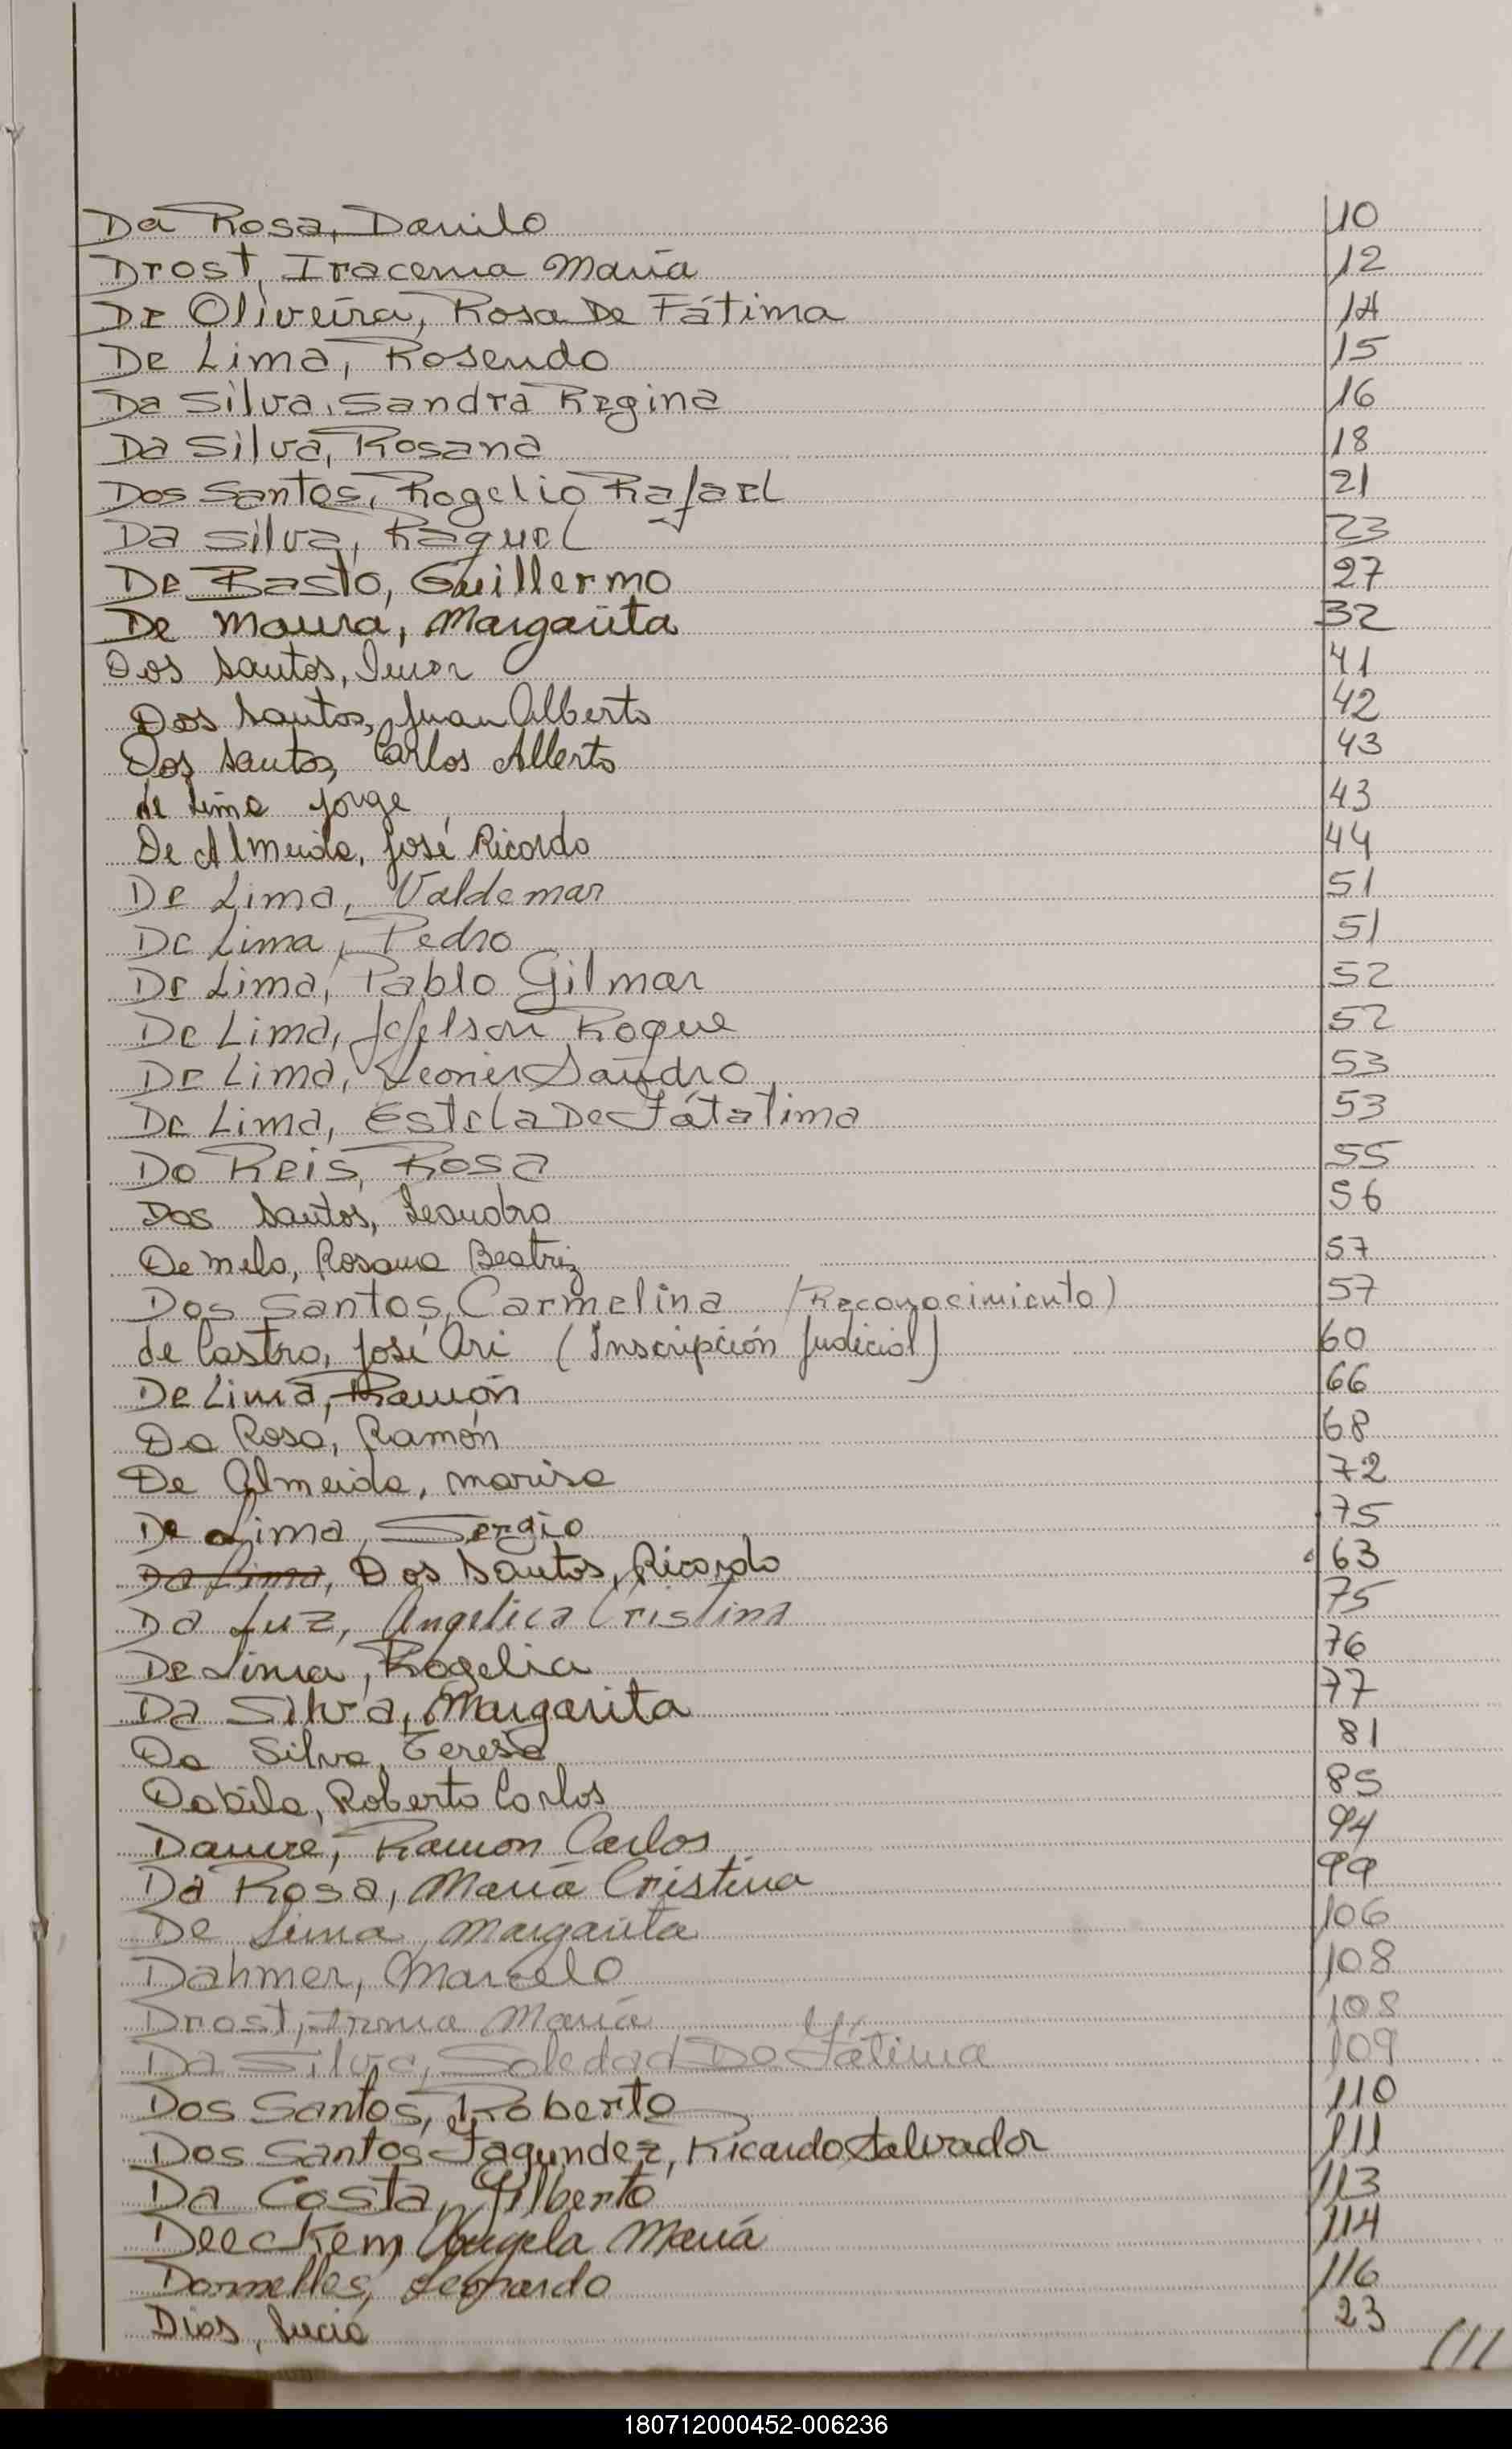 Da Rosa, Danilo 10
Drost, Iracema María 12
De Oliveira, Rosa De Fátima 14
De Lima, Rosendo 15
Da Silva, Sandra Regina 16
Da Silva, Rosana 18
Dos Santos, Rogelio Rafael 21
Da Silva, Raquel 23
De Basto, Guillermo 27
De Moura, Margarita 32
Dos Santos, 41
Dos Santos, Juan Alberto 42
Dos Santos, Carlos Alberto 43
de Lima Jorge 43
De Almeida, José Ricardo 44
De Lima, Valdemar 51
De Lima, Pedro 51
De Lima, Pablo Gilmar 52
De Lima, Roque 52
De Lima, Sandro 53
De Lima, Estela De Fátatima 53
Do Reis, Rosa 55
Dos Santos, Leandro 56
De Melo, Rosana Beatriz 57
Dos Santos, Carmelina (Reconocimiento) 57
de Castro, José Ari (Inscripción Judicial) 60
De Lima, Ramón 66
Da Rosa, Ramón 68
De Almeida, Marisa 72
De Lima, Sergio 75
Da Lima, Dos Santos, Ricardo 63
Da Luz, Angelica Cristina 75
De Lima, Rogelia 76
Da Silva, Margarita 77
Da Silva, Teresa 81
Dabila, Roberto Carlos 85
Ramon Carlos 94
Da Rosa, María Cristina 99
De Lima, Margarita 106
Dahmer, Marcelo 108
Drost, Irma María 108
Da Silva, Soledad Do Fátima 109
Dos Santos, Roberto 110
Dos Santos Fagundez, Ricardo Salvador 111
Da Costa, Gilberto 113
Deeckem, Angela María 114
Dornelles, Leonardo 116
Dias, Lucia 23
///
180712000452-006236